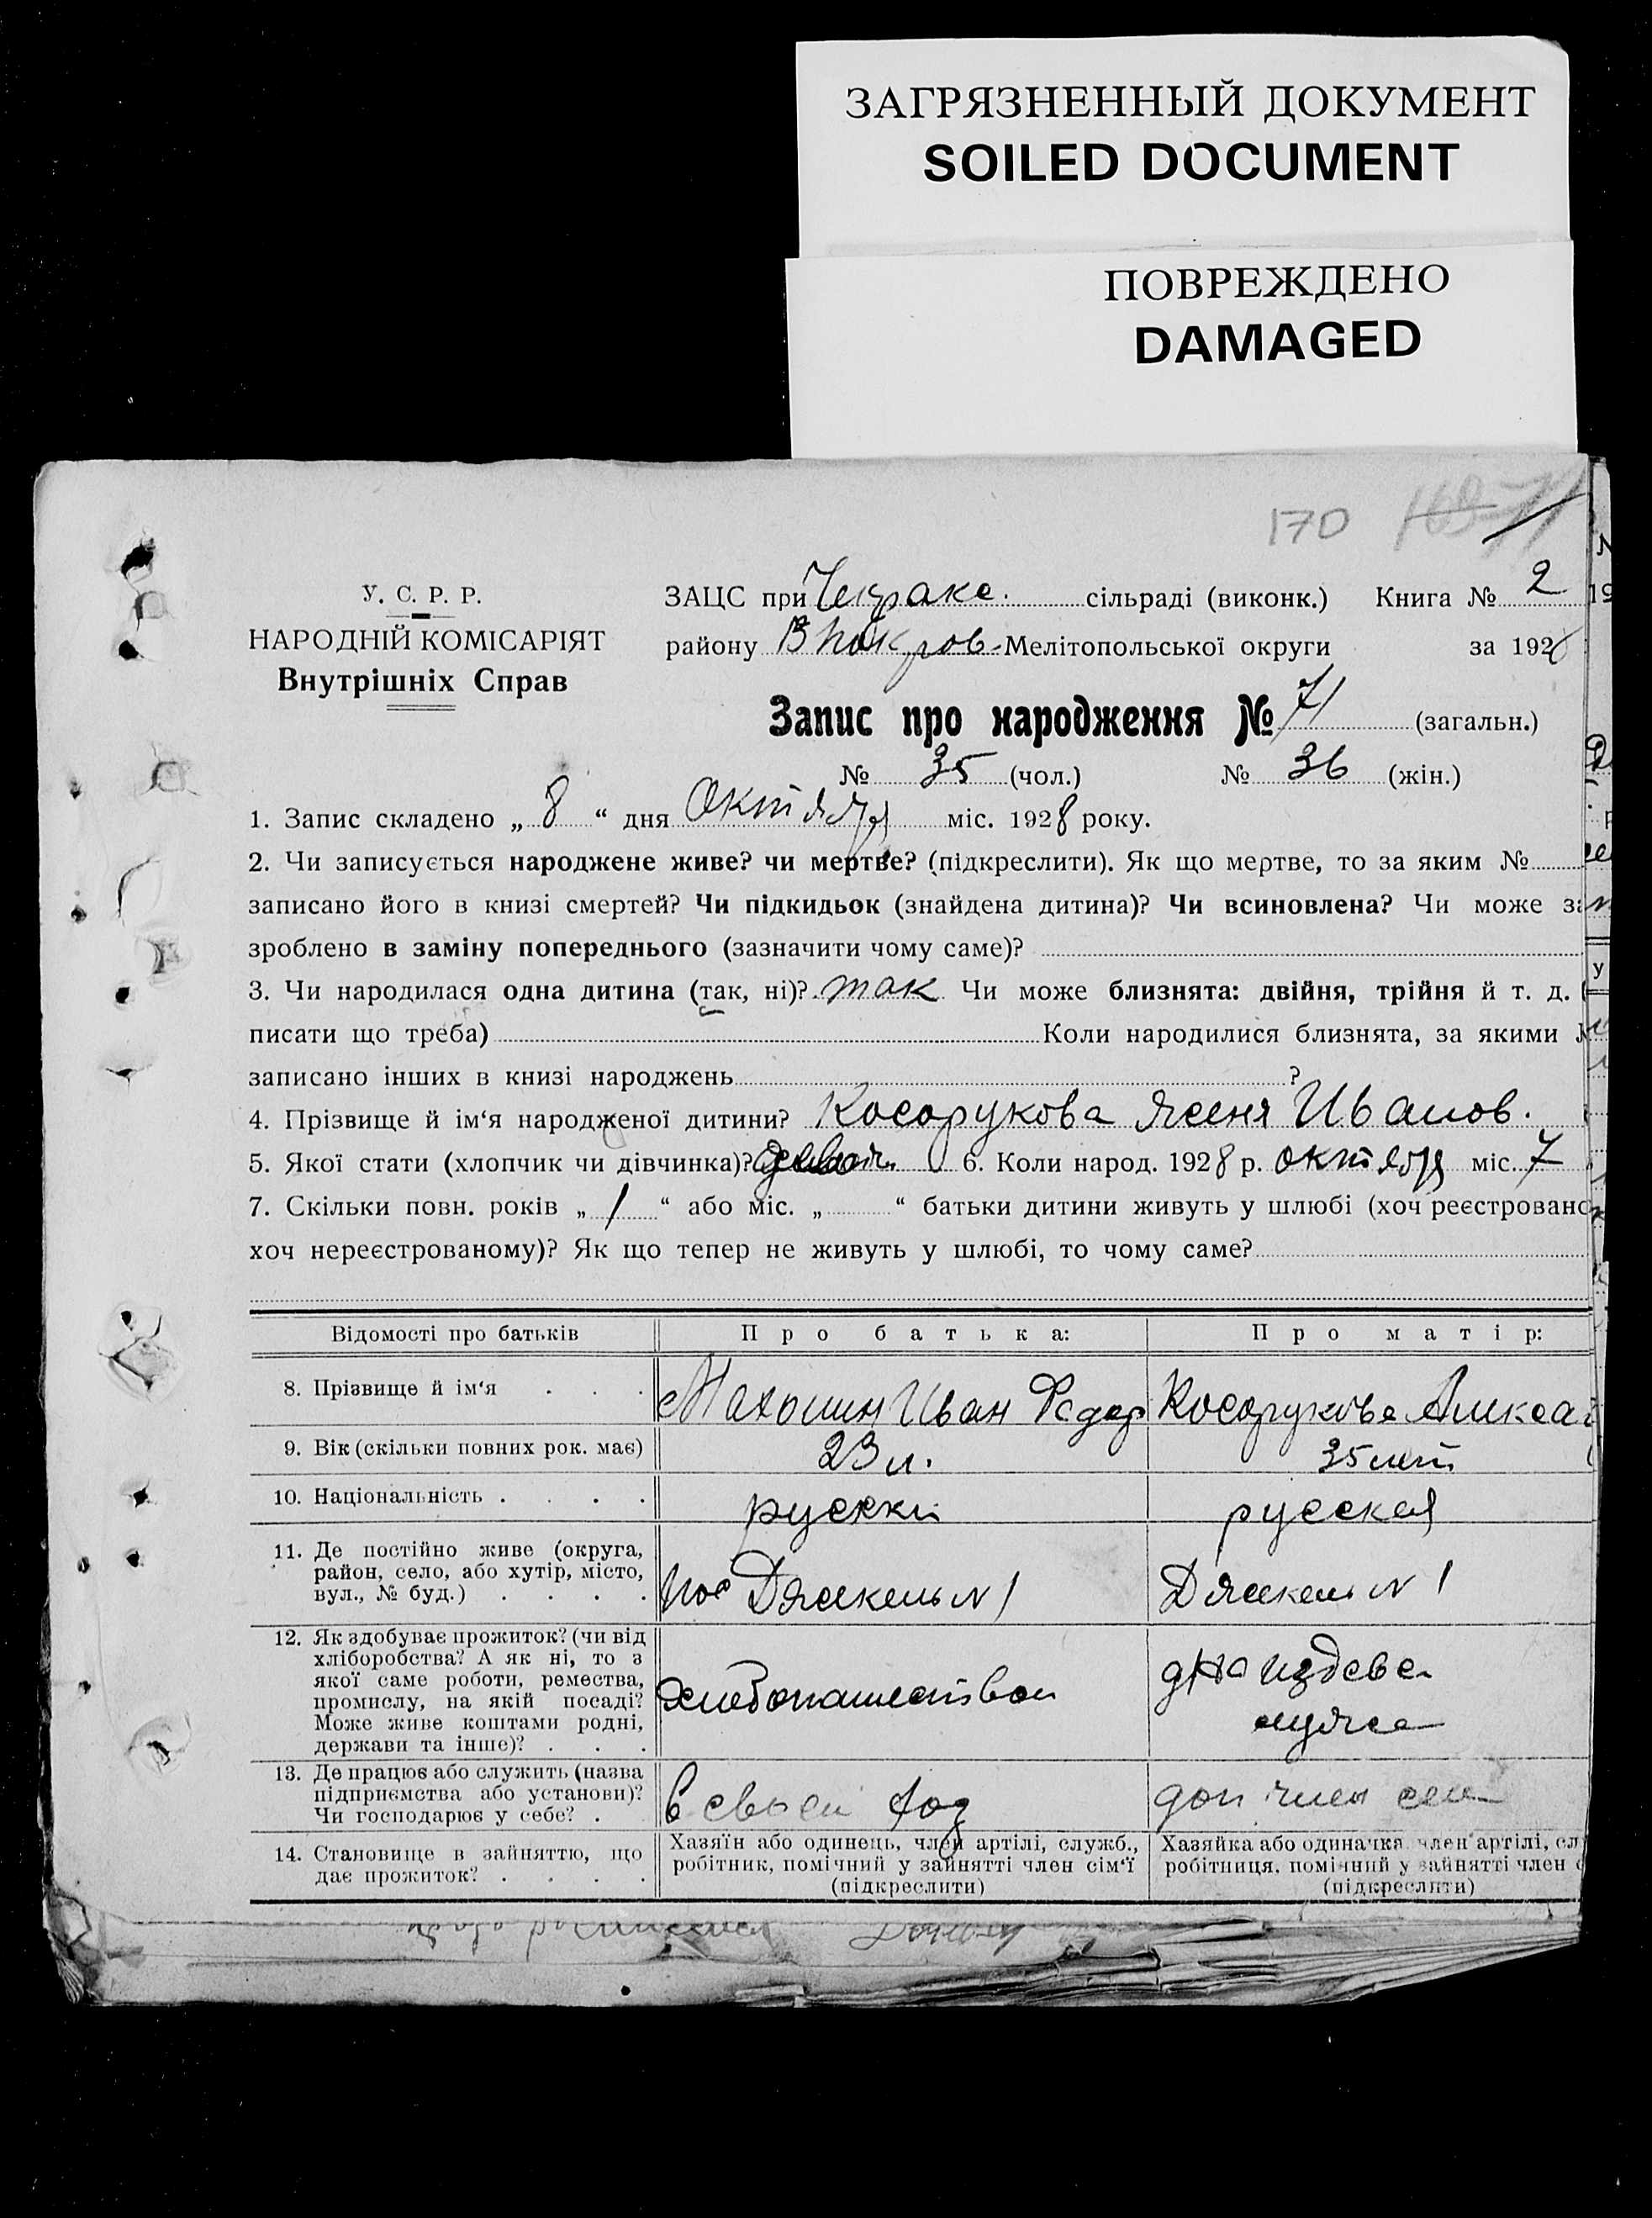 ЗАГРЯЗНЕННЫЙ ДОКУМЕНТ
SOILED DOCUMENT
ПОВРЕЖДЕНО
DAMAGED
170
У. С. Р. Р.
НАРОДНІЙ КОМІСАРІЯТ
Внутрішніх Справ
ЗАЦС при сільраді (виконк.) Книга № 2
району Мелітопольської округи за 192
Запис про народження № 71 (загальн.)
№ 35 (чол.) № 36 (жін.)
1. Запис складено „ 8 “ дня Октября міс. 1928 року.
2. Чи записується народжене живе? чи мертве? (підкреслити). Як що мертве, то за яким №
записано його в книзі смертей? Чи підкидьок (знайдена дитина)? Чи всиновлена? Чи може за
зроблено в заміну попереднього (зазначити чому саме)?
3. Чи народилася одна дитина (так, ні)? так Чи може близнята: двійня, трійня й т. д. (
писати що треба) Коли народилися близнята, за якими
записано інших в книзі народжень ?
4. Прізвище й ім‘я народженої дитини? Косорукова Иванов.
5. Якої стати (хлопчик чи дівчинка)? 6. Коли народ. 1928 р. октября міс. 7
7. Скільки повн. років „ 1 “ або міс. „ “ батьки дитини живуть у шлюбі (хоч реєстровано
хоч нереєстрованому)? Як що тепер не живуть у шлюбі, то чому саме?
Відомості про батьків Про батька: Про матір:
8. Прізвище й ім‘я . . . Махонин Иван Федор Косорукова Алекса
9. Вік (скільки повних рок. має) 23 л. 35 лет
10. Національність . . . . русски русская
11. Де постійно живе (округа,
район, село, або хутір, місто,
вул., № буд.) . . . . пос №1 №1
12. Як здобуває прожиток? (чи від
хліборобства? А як ні, то з
якої саме роботи, ремества,
промислу, на якій посаді?
Може живе коштами родні,
держави та інше)? . . . Хлебопашеством на иждеве
мужа
13. Де працює або служить (назва
підприємства або установи)?
Чи господарює у себе? . в своем хоз доп член сем
14. Становище в зайняттю, що
дає прожиток? . . . .
Хазяїн або одинець, член артілі, служб.,
робітник, помічний у зайнятті член сім‘ї
(підкреслити)
Хазяйка або одиначка, член артілі, сл
робітниця, помічний у зайнятті член с
(підкреслити)